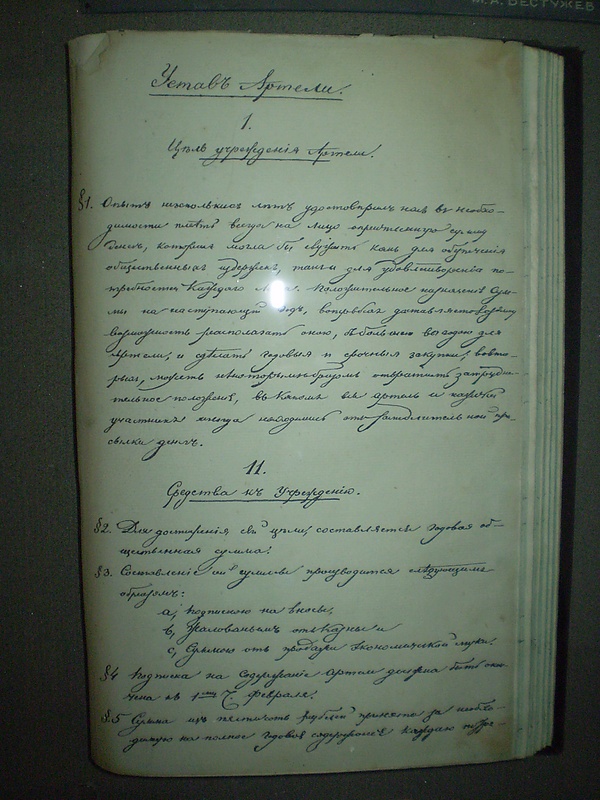 М.А. БЕСТУЖЕВ
Уставъ Артели.
1.
Цѣль учрежденія Артели.
§1. Опытъ нѣсколькихъ лѣтъ удостовѣрилъ насъ въ необхо-
димости имѣть всегда на лицо опредѣленную сумму
денегъ, которая могла бы служить какъ для облегченія
общественныхъ издержекъ, такъ и для удовлетворенія по-
требностей каждаго Положительное назначеніе сум-
мы на наступающій годъ, вопервыхъ доставляетъ
возможность располагать оною, съ большею выгодою для
Артели, и сдѣлать годовыя и срочныя закупки, вовто-
рыхъ, можетъ нѣкоторымъ образомъ отвратить затрудни-
тельное положеніе, въ какомъ вся артель и каждый
участникъ иногда находились отъ
сылки денегъ.
11.
Средства къ Учрежденію.
§2. Для достиженія сей цѣли, составляется годовая об-
щественная сумма.
§3. Составленіе сей суммы производится слѣдующимъ
образомъ:
а, подпискою на взносы,
b, Жалованьемъ отъ Казны и
с, Суммою отъ продажи экономической муки.
§4 Подписка на содержаніе Артели должна быть окон-
чена къ 1му Февраля.
§.5 Сумма изъ пятисотъ рублей принята за необхо-
димую на полное годовое содержаніе каждаго